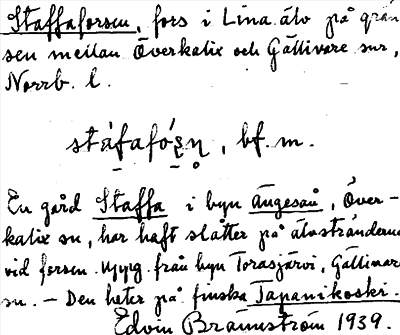 Staffaforsen, fors i Lina älv på grän
sen mellan Överkalix och Gällivare snr,
Norrb. l.
stáfafó̀ṣṇ, bf. m.
En gård Staffa i byn Ängesån, Över-
kalix sn, har haft slåtter på älvstränderna
vid forsen. Uppg. från byn Torasjärvi, Gällivare
sn. – Den heter på finska Tapanikoski.
Edvin Brännström 1939.